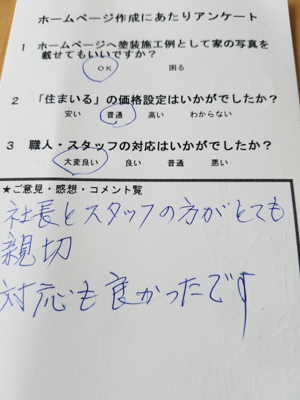 ホームページ作成にあたりアンケート
1 ホームページへ塗装施工例として家の写真を
載せてもいいですか？
OK 困る
2 「住まいる」の価格設定はいかがでしたか？
安い 普通 高い わからない
3 職人・スタッフの対応はいかがでしたか？
大変良い 良い 普通 悪い
★ご意見・感想・コメント覧
社長とスタッフの方がとても
親切
対応も良かったです